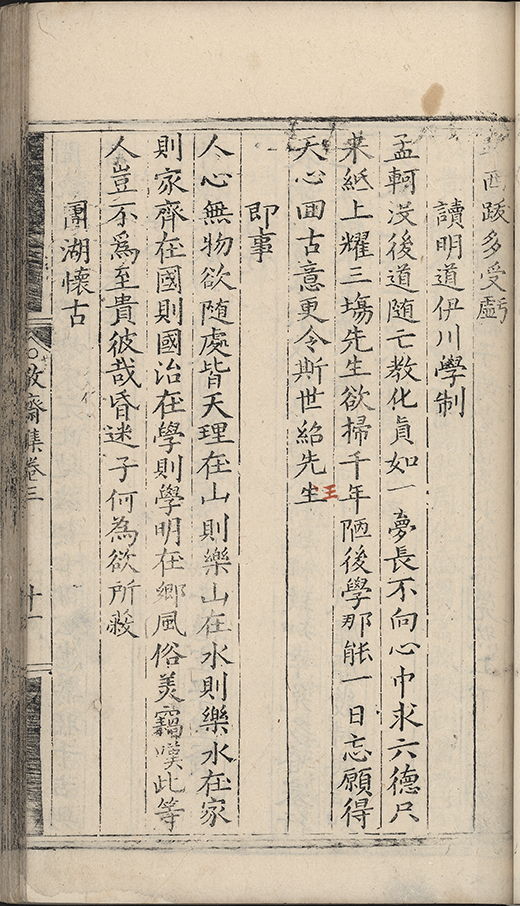 西跋多受虧
讀明道伊川學制
孟軻没後道随亡教化貞如一夢長不向心巾求六德只
来紙上耀三塲先生欲掃千年陋後學那能一日忘願得
天心囬古意更令斯世紹先生
王
即事
人心無物欲随處皆天理在山則樂山在水則樂水在家
則家齊在國則國治在學則學明在鄉風俗美竊嘆此等
人豈不爲至貴彼哉昏迷子何為欲所
圍湖懷古
敬齋集卷三
十一